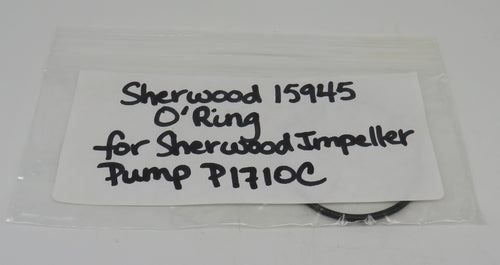 Sherwood 15945
O'Ring
for Sherwood Impeller
Pump P1710C